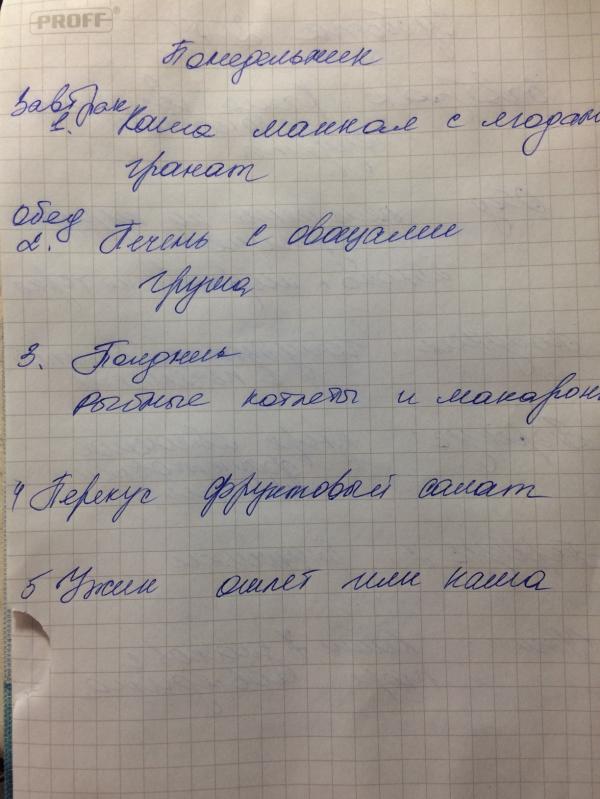 PROFF®
Понедельник
Завтрак
1. Каша манная с ягодам
гранат
Обед
2. Печень с овощами
груша
3. Полдник
рыбные котлеты и макарон
4 Перекус фруктовый салат
5 Ужин омлет или каша